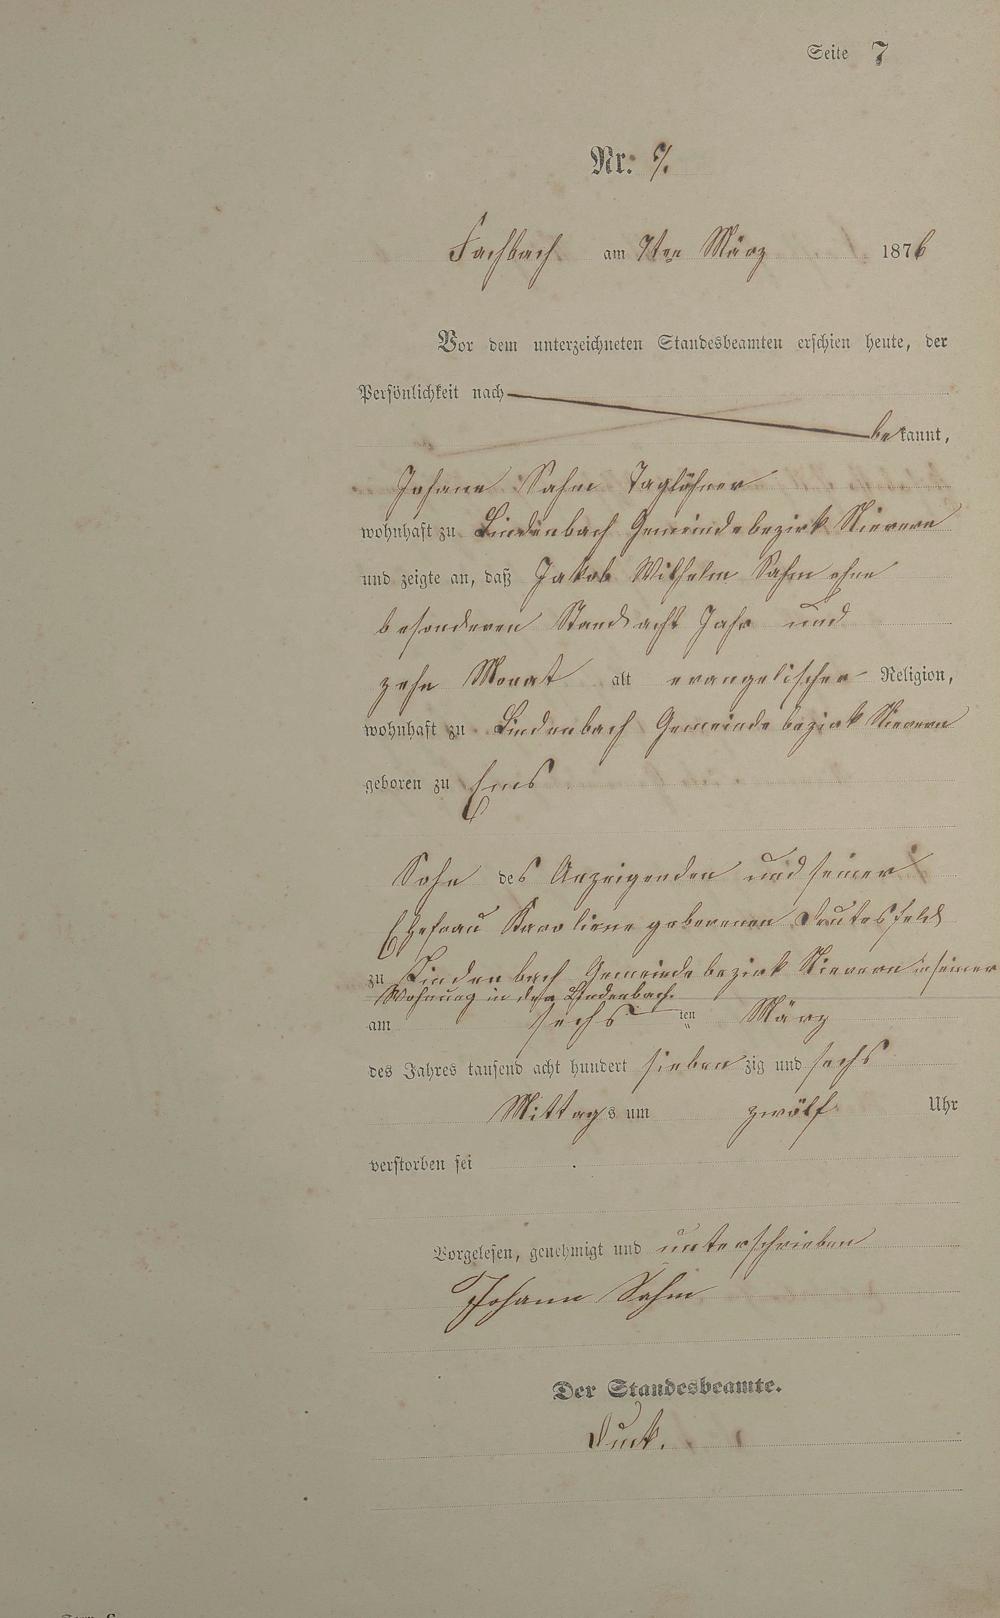 Seite 7
Nr. 7.
Fachbach am 7ten März 1876
Vor dem unterzeichneten Standesbeamten erschien heute, der
Persönlichkeit nach
bekannt,
Johann Sahm Taglöhner
wohnhaft zu Lindenbach Gemeindebezirk Nievern
und zeigte an, daß Jakob Wilhelm Sahm ohne
besonderen Stand acht Jahr und
zehn Monat alt evangelischer Religion,
wohnhaft zu Lindenbach Gemeindebezirk Nievern
geboren zu Ems
Sohn des Anzeigenden und seiner
Ehefrau Karoliene geborenen
zu Lindenbach Gemeindebezirk Nievern in seiner
Wohnung in der Lindenbach.
am sechsten März
des Jahres tausend acht hundert siebenzig und sechs
Mittags um zwölf Uhr
verstorben sei
Vorgelesen, genehmigt und unterschrieben
Johann Sahm
Der Standesbeamte.